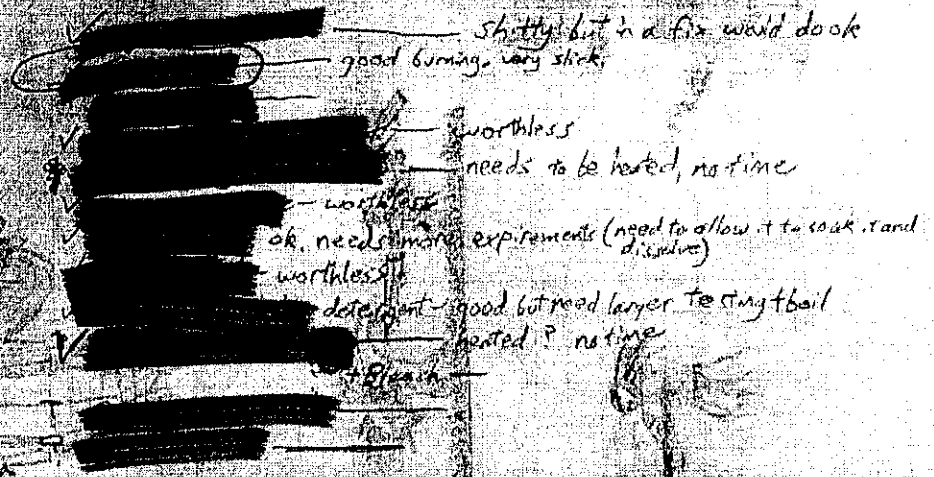 shitty but in a fix would do ok
good burning, very slick,
worthless
needs to be heated, no time
worthless
ok, needs more expirements (need to allow it to soak it and dissolve)
worthless
detergent - good but need larger testing + boil
heated? no time
+ Bleach